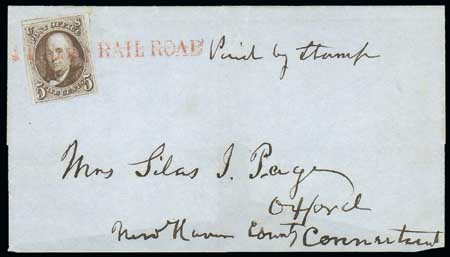 POST OFFICE
5 FIVE CENTS 5
RAIL ROAD Paid by Stamp
Mrs Silas I. Page
Oxford
New Haven County Connecticut